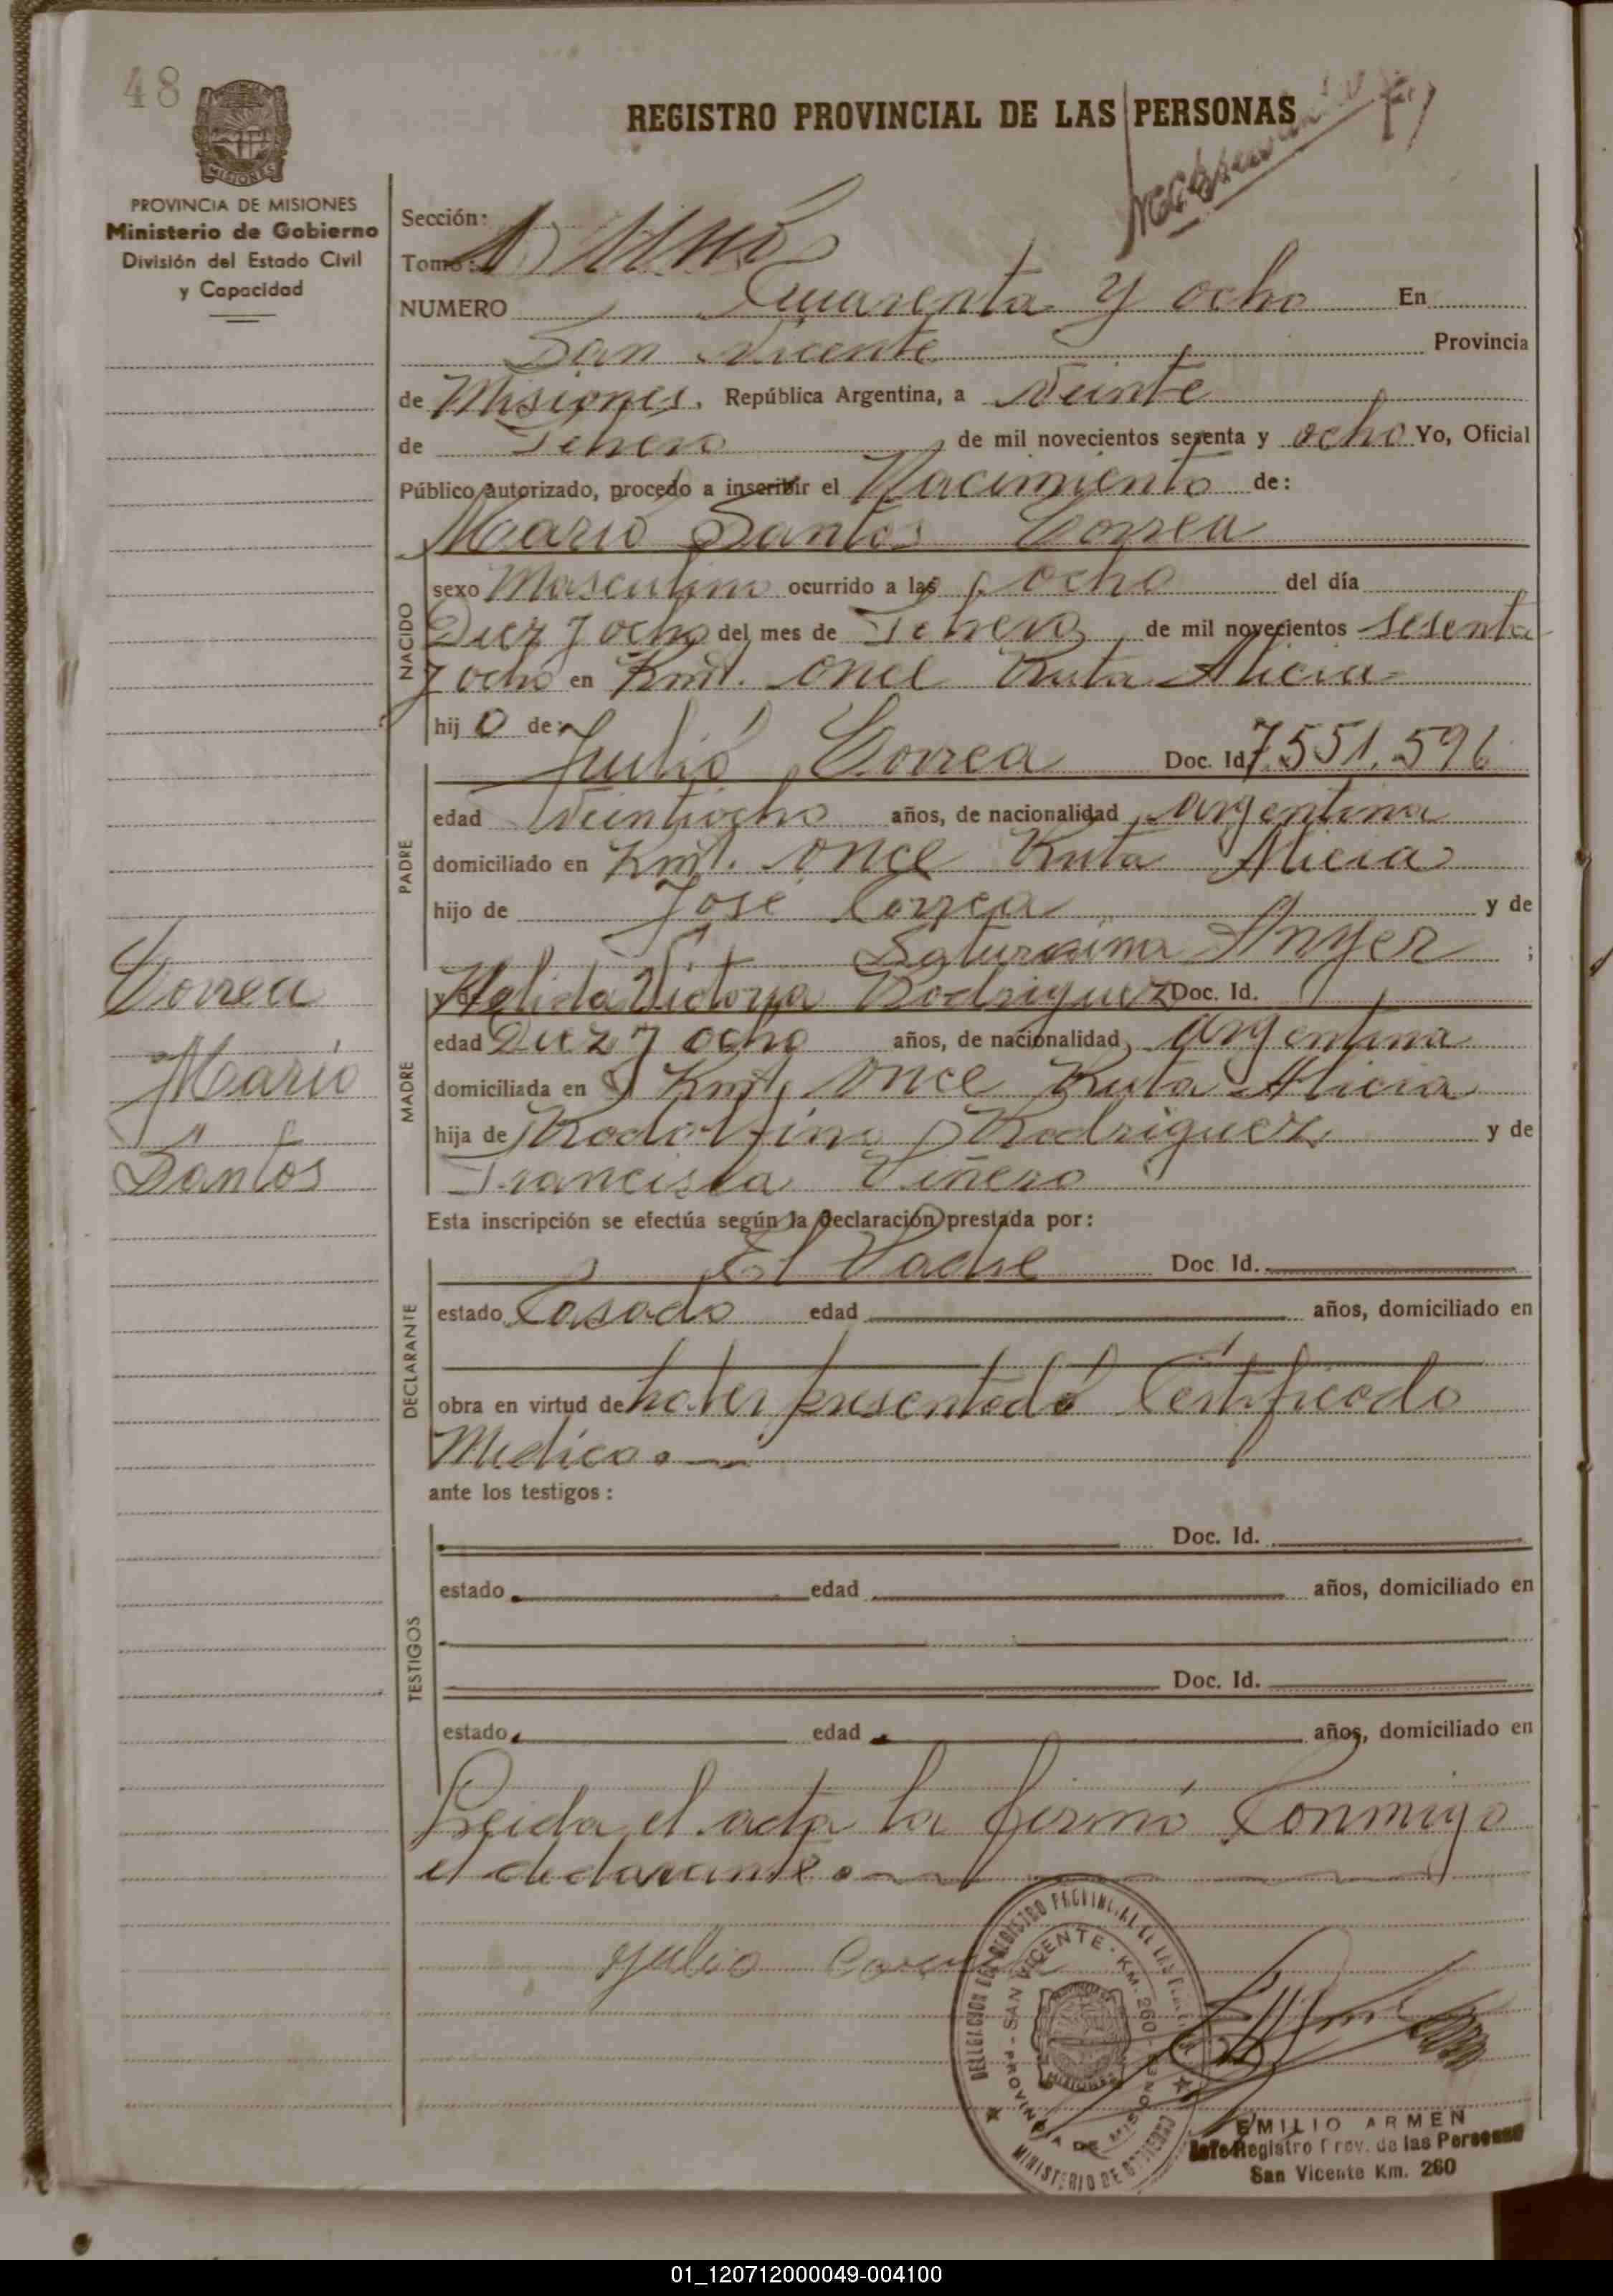 48
REGISTRO PROVINCIAL DE LAS PERSONAS
PROVINCIA DE MISIONES
Ministerio de Gobierno
División del Estado Civil
y Capacidad
Sección:
Tomo:
NUMERO Cuarenta y ocho En
San Vicente Provincia
de Misiones, República Argentina, a Veinte
de Febrero de mil novecientos sesenta y ocho Yo, Oficial
Público autorizado, procedo a inscribir el Nacimiento de:
Mario Santos Correa
NACIDO
sexo Masculino ocurrido a las ocho del día
Diez y ocho del mes de Febrero de mil novecientos sesenta
y ocho en Kmt. once Ruta Alicia
hijo de:
Julio Correa Doc. Id. 7.551.596
PADRE
edad Veintiocho años, de nacionalidad argentina
domiciliado en Kmt. once Ruta Alicia
hijo de José Correa y de
Saturnina ;
Correa
Mario
Santos
MADRE
y de Victoria Rodriguez Doc. Id.
edad Diez y ocho años, de nacionalidad argentina
domiciliada en Kmt, once Ruta Alicia
hija de Rodriguez y de
Francisca
Esta inscripción se efectúa según la declaración prestada por:
DECLARANTE
El Padre Doc. Id.
estado Casado edad años, domiciliado en
obra en virtud de haber presentado Certificado
Medico
ante los testigos:
TESTIGOS
Doc. Id.
estado edad años, domiciliado en
Doc. Id.
estado edad años, domiciliado en
Leida el acta la firmó Conmigo
el declarante
Julio Correa
DELEGACION DEL REGISTRO PROVINCIAL DE LAS
SAN VICENTE - KM. 260 - PROVINCIA DE MISIONES
MISIONES
MINISTERIO DE GOBIERNO
EMILIO ARMEN
Jefe Registro Prov. de las Personas
San Vicente Km. 260
01_120712000049-004100